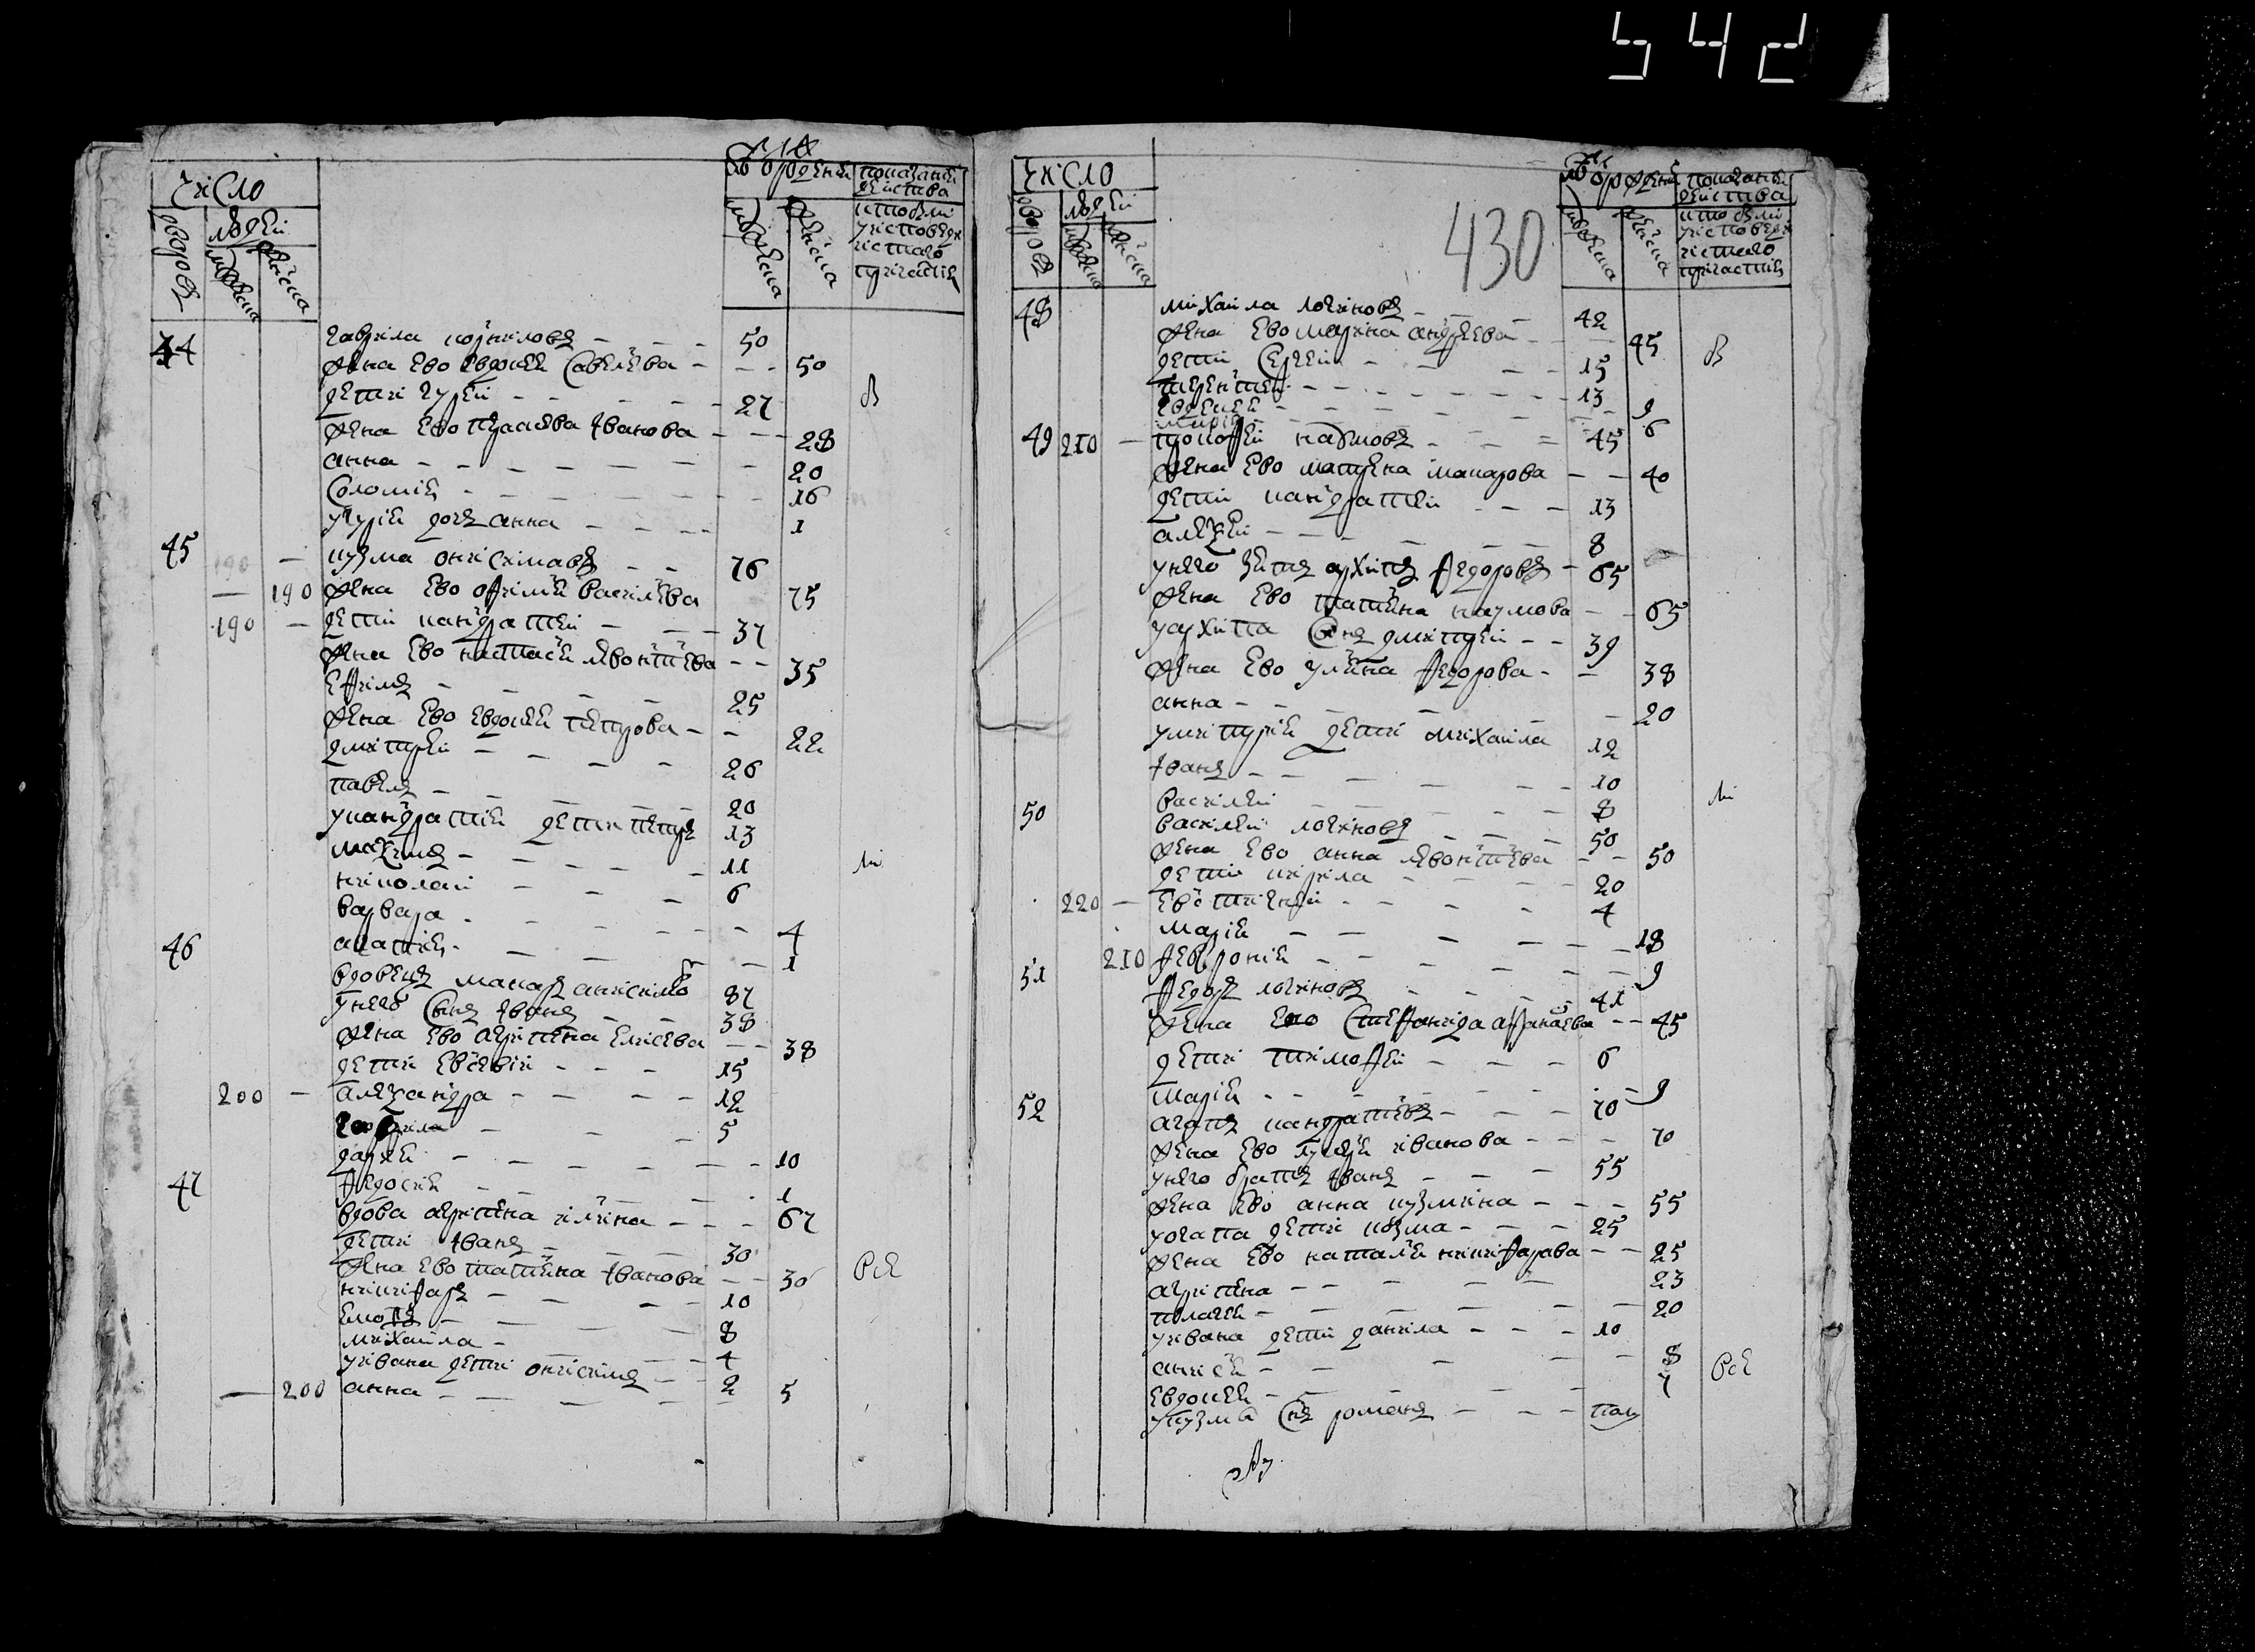 542
число
дворовъ
людей
мужеска
женска
лѣ ѿ рожденія
мужеска
женска
показаніе
действа
кто былъ
у исповеди
и святаго
причастия
44 гаврила корниловъ 50
жена ево евдокея савельева 50
дети гурей 27
жена ево прасковя іванова 28
анна 20
соломия 16
у гурия дочъ анна 1
45 190 кузма онисимавъ 76
190 жена ево офимья василева 75
190 дети кандратей 37
жена ево настасья левонтьева 35
ефимъ 25
жена ево евдокея петрова 22
дмитрей 26
павелъ 20
у кандратия дети петръ 13
максимъ 11
николай 6
варвара 4
агапия 1
46 вдовецъ макаръ анисимо 87
у него сынъ іванъ 38
жена ево агрипена елисева 38
дети евсевий 15
200 александра 12
гаврила 5
дарья 10
федосия 1
47 вдова агрипена ильина 67
дети іванъ 30
жена ево татьяна іванова 30
никифаръ 10
михайла 4
у ивана дети онисимъ 2
200 анна 5
430
число
дворовъ
людей
мужеска
женска
лѣ ѿ рожденія
мужеска
женска
показаніе
действа
кто былъ
у исповеди
и святаго
причастия
48 михайла логиновъ 42
жена ево марина андреева 45
дети сергей 15
терентей 13
евдокея 9
мария 6
49 210 прокофей наумовъ 45
жена ево матрена макарова 40
дети кандратей 13
алексей 8
у него зять архипъ федоровъ 65
жена ево татьяна наумова 65
у архипа сынъ дмитрей 39
жена ево ульяна федорова 38
анна 20
у митрия дети михаила 12
іванъ 10
василей 8
50 василей логиновъ 50
жена ево анна левонтьева 50
дети кирила 20
220 евстигней 4
мария 18
210 феврония 9
51 федоръ логиновъ 41
жена ево стефанида афанасева 45
дети тимофей 6
мария 9
52 агапъ кандратьевъ 70
жена ево лукерья иванова 70
у него братъ іванъ 55
жена ево анна кузмина 55
у агапа дети козма 25
жена ево наталья никифарава 25
агрипена 23
пелагея 20
у ивана дети данила 10
анисья 8
евдокея 7
у кузма снъ романъ